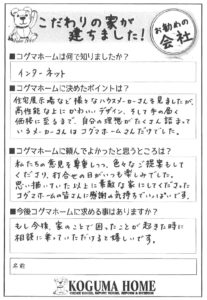 こだわりの家が
建ちました!
お勧めの
会社
■コグマホームは何で知りましたか?
インターネット
■コグマホームに決めたポイントは?
住宅展示場など様々なハウスメーカーさんを見ましたが、
高性能な上にかわいいデザイン、そして手の届く
価格に至るまで、自分の理想がたくさん詰まって
いるメーカーさんはコグマホームさんだけでした。
■コグマホームに頼んでよかったと思うところは?
私たちの意見を尊重しつつ、色々なご提案もして
くださり、打合せの日がいつも楽しみでした。
思い描いていた以上に素敵な家にしてくださった
コグマホームの皆さんに感謝の気持ちでいっぱいです。
■今後コグマホームに求める事はありますか?
もし今後、家のことで困ったことが起きた時に
相談に乗っていただけると嬉しいです。
名前
KOGUMA HOME